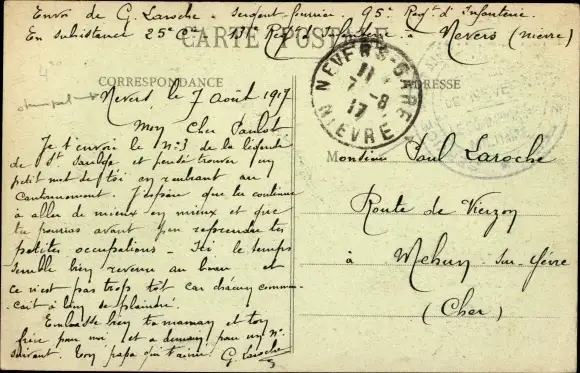 Envoi de G. Laroche - sergent fourrier 95e Regt d'Infanterie
En subsistance 25e Cie 13e Regt d'Infanterie à Nevers (nievre)
CARTE POSTALE
CORRESPONDANCE
ADRESSE
NEVERS-GARE
11
7-8
17
NIEVRE
Nevers le 7 Août 1917
Mon Cher Paulot
Je t'envoie le No 3 de la légende
de St Saulge et pense trouver un
petit mot de toi en rentrant au
Cantonnement J'espère que tu continue
à aller de mieux en mieux et que
tu pourras avant peu reprendre tes
petites occupations - Ici le temps
semble bien revenu au beau et
ce n'est pas trop tôt car chacun commen-
-çait à bien se plaindre.
Embrasse bien ta maman et ton
frère pour moi et à demain pour un No
suivant. Ton papa qui t'aime. G. Laroche
Monsieur Paul Laroche
Route de Vierzon
à Mehun-sur-Yèvre
(Cher)